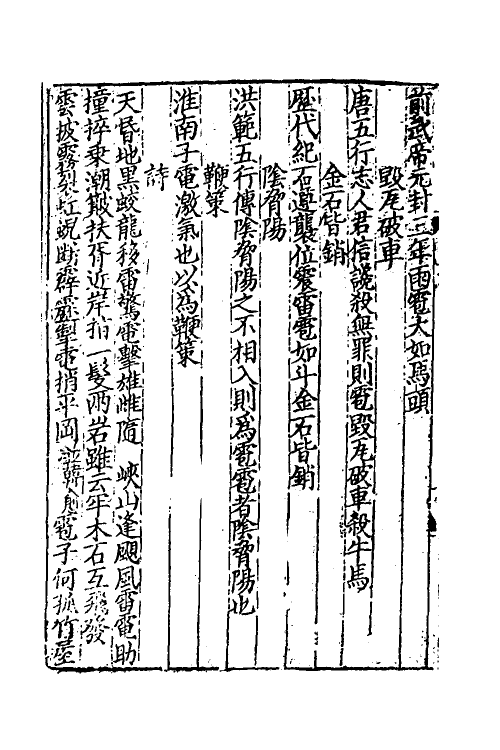 前武帝元封二年雨雹大如馬頭
毀瓦破車
唐五行志人君信讒殺無罪則雹毀瓦破車殺牛馬
金石皆銷
歴代紀石遵襲位震雷雹如斗金石皆銷
陰脅陽
洪範五行傳陰脅陽之不相入則為雹雹者陰脅陽也
鞭策
淮南子電激氣也以為鞭策
詩
天昏地黑蛟龍移雷驚電擊雄雌隨 峽山逢颶風雷電助
撞捽乗潮簸扶胥近岸指一髮兩岩雖云牢木石互飛發
雲披霧裂虹蜺斷霹靂掣電捎平岡並韓愈雹子何孫竹屋